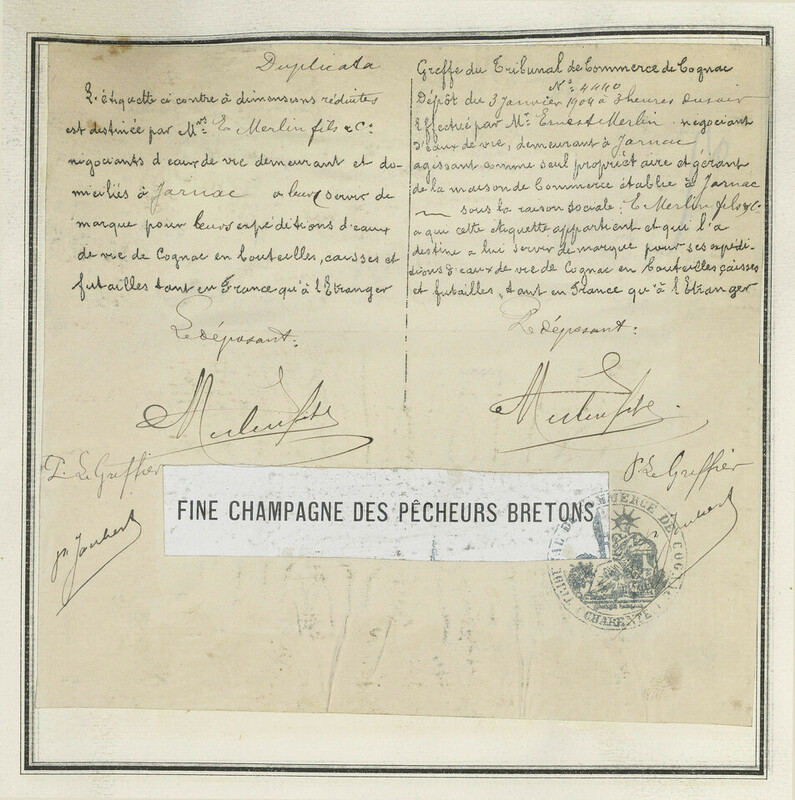 Duplicata
L'étiquette ci contre à dimensions réduites
est destinée par Mrs E Merlin fils & Cie
négociants d'eaux de vie demeurant et do-
miciliés à Jarnac a leur servir de
marque pour leurs expéditions d'eaux
de vie de Cognac en bouteilles, caisses et
futailles tant en France qu'à l'Etranger
Le déposant:
Merlin fils
P. Le Greffier
Joubert
Greffe du Tribunal de Commerce de Cognac
No: 4440
Dépôt du 3 Janvier 1904 à 3 heures du soir
Effectué par Mr Ernest Merlin négociant
d'eaux de vie, demeurant à Jarnac
agissant comme seul propriétaire et gérant
de la maison de Commerce établie à Jarnac
sous la raison sociale: E Merlin fils & Cie
a qui cette étiquette appartient et qui l'a
destine a lui servir de marque pour ses expédi-
tions d'eaux de vie de Cognac en bouteilles caisses
et futailles, tant en France qu'à l'Etranger
Le déposant:
Merlin fils
P. Le Greffier
Joubert
FINE CHAMPAGNE DES PÊCHEURS BRETONS
TRIBUNAL DE COMMERCE DE COGNAC
CHARENTE